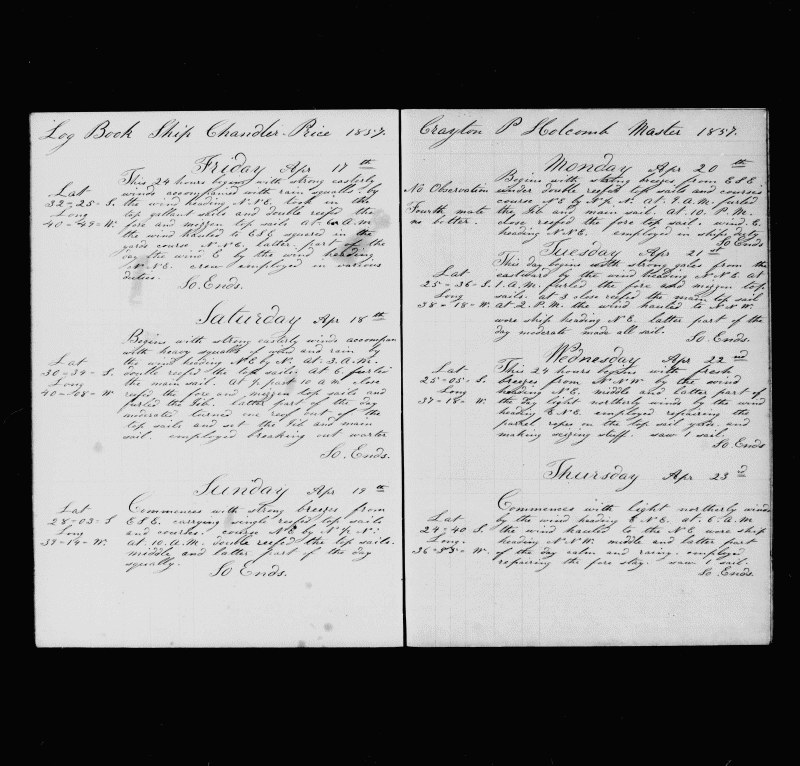 Log Book Ship Chandler Price 1857.
Friday Apr 17th
This 24 hours begins with strong easterly
Lat winds accompanied with rain squalls. by
32-25-S. the wind heading N.N.E. took in the
Long top gallant sails and double reefed the
40-49-W. fore and mizzen top sails At. 6. A.M
the wind hauled to ESE squared in the
yards course N.N.E. latter part of the
day the wind E by the wind heading
N.N.E. crew employed in various
duties.
So. Ends.
Saturday Apr 18th
Begins with strong easterly winds accompan
with heavy squalls of wind and rain by
Lat the wind heading N.E by N. At. 3. A.M.
30-39-S. double reefed the top sails. At 6. furled
Long the main sail. At 7. past 10 A M. close
40-08-W reefed the fore and mizzen top sails and
furled the Jib. latter part of the day
moderated turned one reef out of the
top sails and set the Jib and main
sail. employed breaking out warter
So. Ends.
Sunday Apr 19th
Lat Commences with strong breezes from
28-03-S E.S.E. carrying single reefed top sails
Long and courses. course N.E by N. ½ N.
39-14-W. At. 10. A.M. double reefed the top sails.
middle and latter part of the day
squally.
So Ends.
Crayton P Holcomb Master 1857.
Monday Apr 20th
Begins with strong breezes from E.S.E
No Observation under double reefed top sails and courses
course N.E by N. ½ N. At. 9. A.M. furled
Fourth mate the Jib and main sail. At. 10. P.M.
no better. close reefed the fore top sail. wind E.
heading N.N.E. employed in ships duty
So Ends
Tuesday Apr 21st
This day begins with strong gales from the
Lat eastward by the wind heading N.N.E At
25-36-S. 1. A.M. furled the fore and mizzen top
Long sails. at 3 close reefed the main top sail
38-18-W. At 2. P.M. the wind hauled to N.N.W.
wore ship heading N.E. latter part of the
day moderate made all sail.
So. Ends.
Wednesday Apr 22nd
Lat This 24 hours begins with fresh
25-05-S. breezes from N.N.W by the wind
Long heading N.E. middle and latter part of
37-18-W. the day light northerly winds by the wind
heading E.N.E. employed repairing the
parrel ropes on the top sail yards. and
making seizing stuff. saw 1 sail.
So. Ends
Thursday Apr 23d
Commences with light northerly winds
Lat by the wind heading E.N.E. at. 6. A.M
24-40 S. the wind hauled to the N.E wore ship
Long. heading N.N.W. middle and latter part
36-55-W. of the day calm and raring. employed
repairing the fore stay. saw 1 sail.
So. Ends.